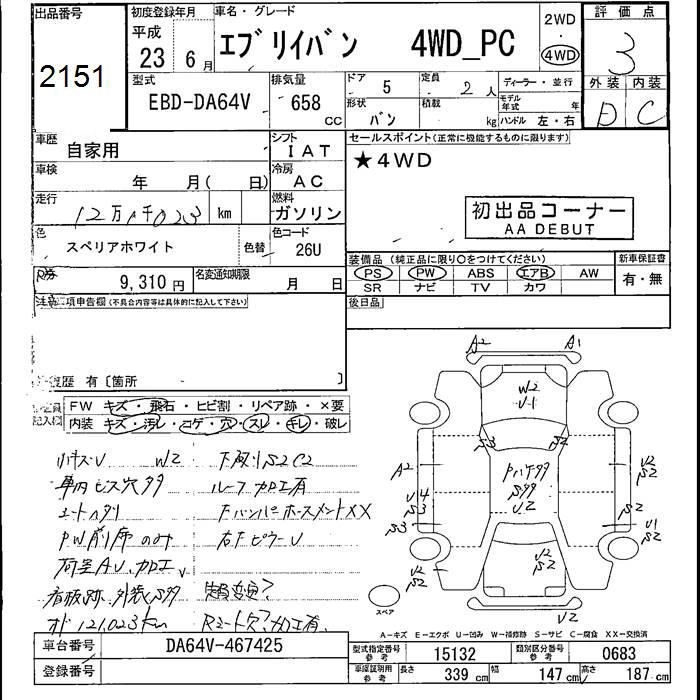 出品番号
2151
初度登録年月
平成
23 6月
車名・グレード
エブリイバン 4WD_PC
2WD
・
4WD
評価点
3
外装 内装
D C
型式
EBD-DA64V
排気量
658 CC
ドア
5
形状
バン
定員
2 人
積載
kg
ディーラー・並行
モデル年式 年
ハンドル 左・右
車歴
自家用
シフト
IAT
車検
年 月( 日)
冷房
AC
走行
12万1千023 km
燃料
ガソリン
色
スペリアホワイト
色替
色コード
26U
R券
9,310円
名変通知期限
月 日
セールスポイント(正常に機能するものに限ります)
★4WD
初出品コーナー
AA DEBUT
装備品 (純正品に限り〇をつけてください)
PS PW ABS エアB AW
SR ナビ TV カワ
新車保証書
有・無
後日品
注意事項申告欄(不具合内容等は具体的に記入して下さい)
修復歴 有〔箇所 〕
記入欄
FW キズ・飛石・ヒビ割・リペア跡・×要
内装 キズ・汚レ・コゲ・穴・スレ・キレ・破レ
小キズV W2 下廻りS2C2
車内ビス穴多々 ルーフ加工有
シートヘタリ FバンパーホースメントXX
PW前席のみ 右FピラーU
荷室AV、加工
看板跡、外装S多々 定員変更?
オド121,023km Rシート欠?加工有
A2 A1
W2
U-1
S3 S2
A2
U4
S3
S3
Pハゲ多々
S多々
U2
U2
S2
S2
U1
S2
U2
S2
U2
S2
U2
スペア
A-キズ E-エクボ U-凹み W-補修跡 S-サビ C-腐食 XX-交換済
車台番号
DA64V-467425
登録番号
型式指定番号
参考
15132
類別区分番号
参考
0683
車庫証明用
参考
長さ 339 cm
幅 147 cm
高さ 187 cm